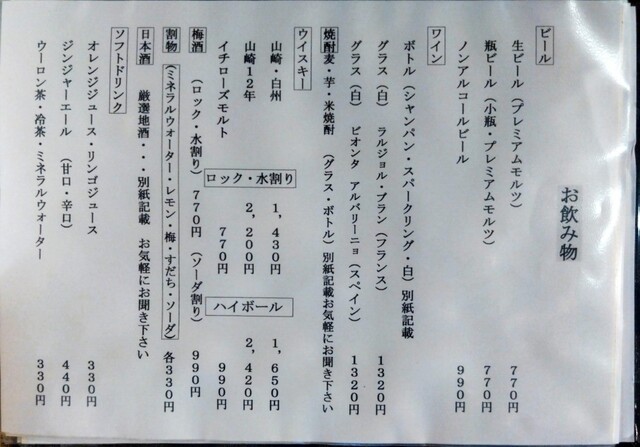 お飲み物
ビール
生ビール（プレミアムモルツ） 770円
瓶ビール（小瓶・プレミアムモルツ） 770円
ノンアルコールビール 990円
ワイン
ボトル（シャンパン・スパークリング・白）別紙記載
グラス（白） ラルジョル・ブラン（フランス） 1320円
グラス（白） ピオンタ アルバリーニョ（スペイン） 1320円
焼酎 麦・芋・米焼酎 （グラス・ボトル）別紙記載お気軽にお聞き下さい
ウイスキー ロック・水割り ハイボール
山崎・白州 1,430円 1,650円
山崎12年 2,200円 2,420円
イチローズモルト 770円 990円
梅酒 （ロック・水割り）770円 （ソーダ割り）990円
割物 （ミネラルウォーター・レモン・梅・すだち・ソーダ）各330円
日本酒 厳選地酒・・・別紙記載 お気軽にお聞き下さい
ソフトドリンク
オレンジジュース・リンゴジュース 330円
ジンジャーエール （甘口・辛口） 440円
ウーロン茶・冷茶・ミネラルウォーター 330円